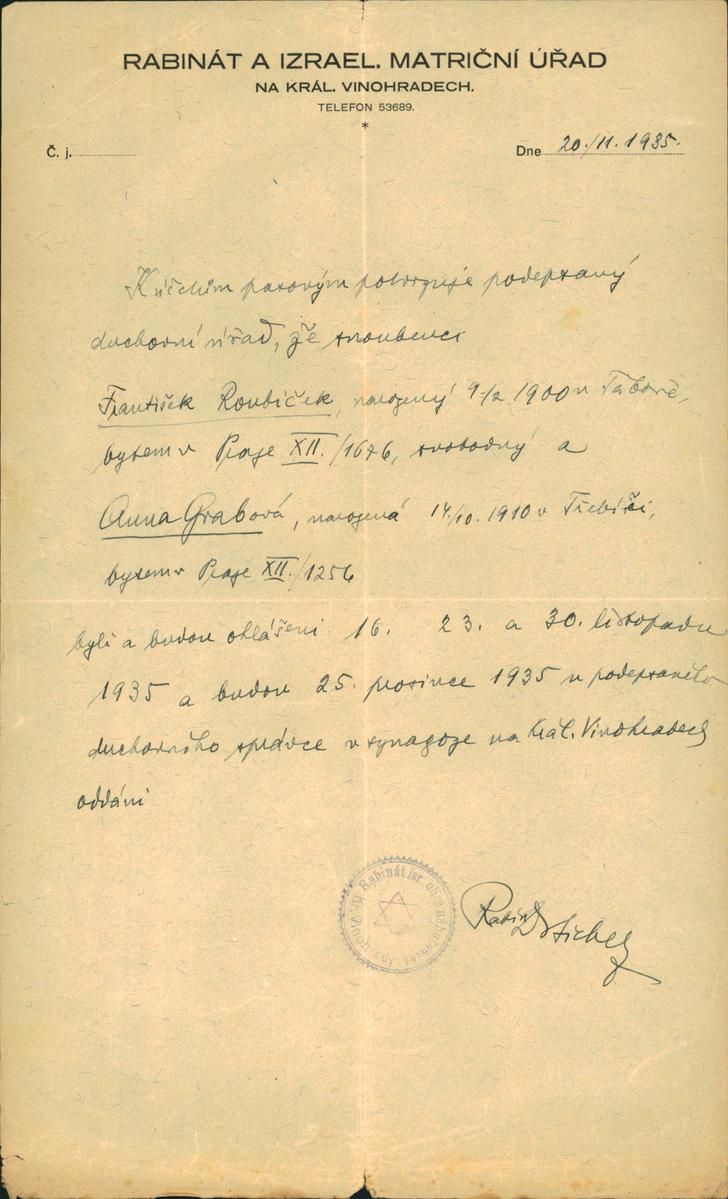 RABINÁT A IZRAEL. MATRIČNÍ ÚŘAD
NA KRÁL. VINOHRADECH.
TELEFON 53689.
*
Č. j. Dne 20./11. 1935.
K účelům pasovým potvrzuje podepsaný
duchovní úřad, že snoubenci
František Roubíček, narozený 9/2 1900 v Táboře,
bytem v Praze XII./1676, svobodný a
Anna Grabová, narozená 14/10. 1910 v Třebíči,
bytem v Praze XII./1256
byli a budou ohlášeni 16. 23. a 30. listopadu
1935 a budou 25. prosince 1935 u podepsaného
duchovního správce v synagoze na Král. Vinohradech
oddáni
Rabinát isr. obce
Rabín